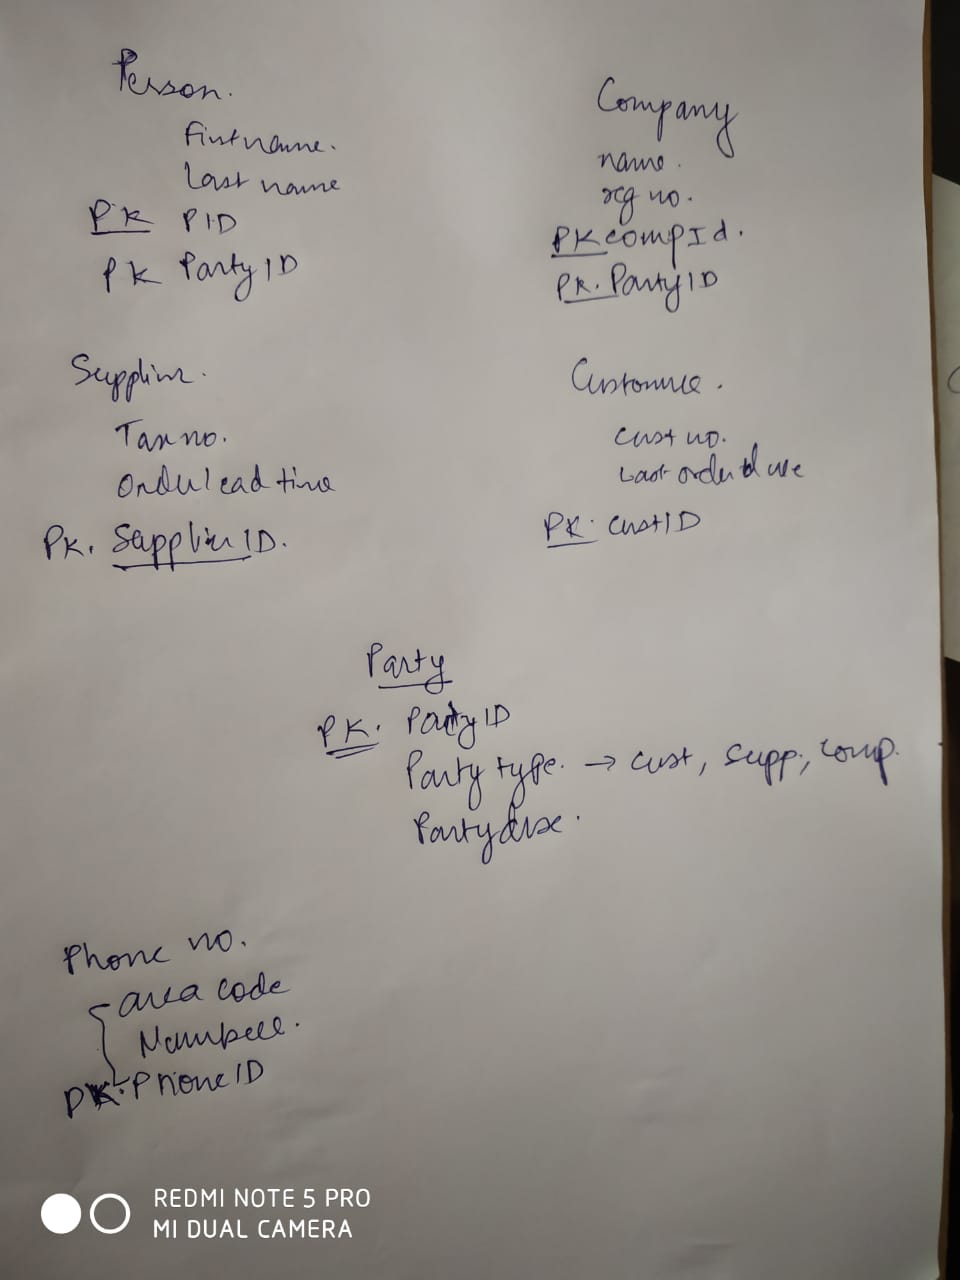 Person.
First name.
Last name
PK PID
PK Party ID
Company
name.
reg no.
PK compId.
PK. Party ID
Supplier.
Tax no.
Order lead time
PK. Supplier ID.
Customer.
Cust no.
Last order
PK. CustID
Party
PK. Party ID
Party type. → cust, supp, comp.
Party
Phone no.
area code
Number.
PK. Phone ID
REDMI NOTE 5 PRO
MI DUAL CAMERA